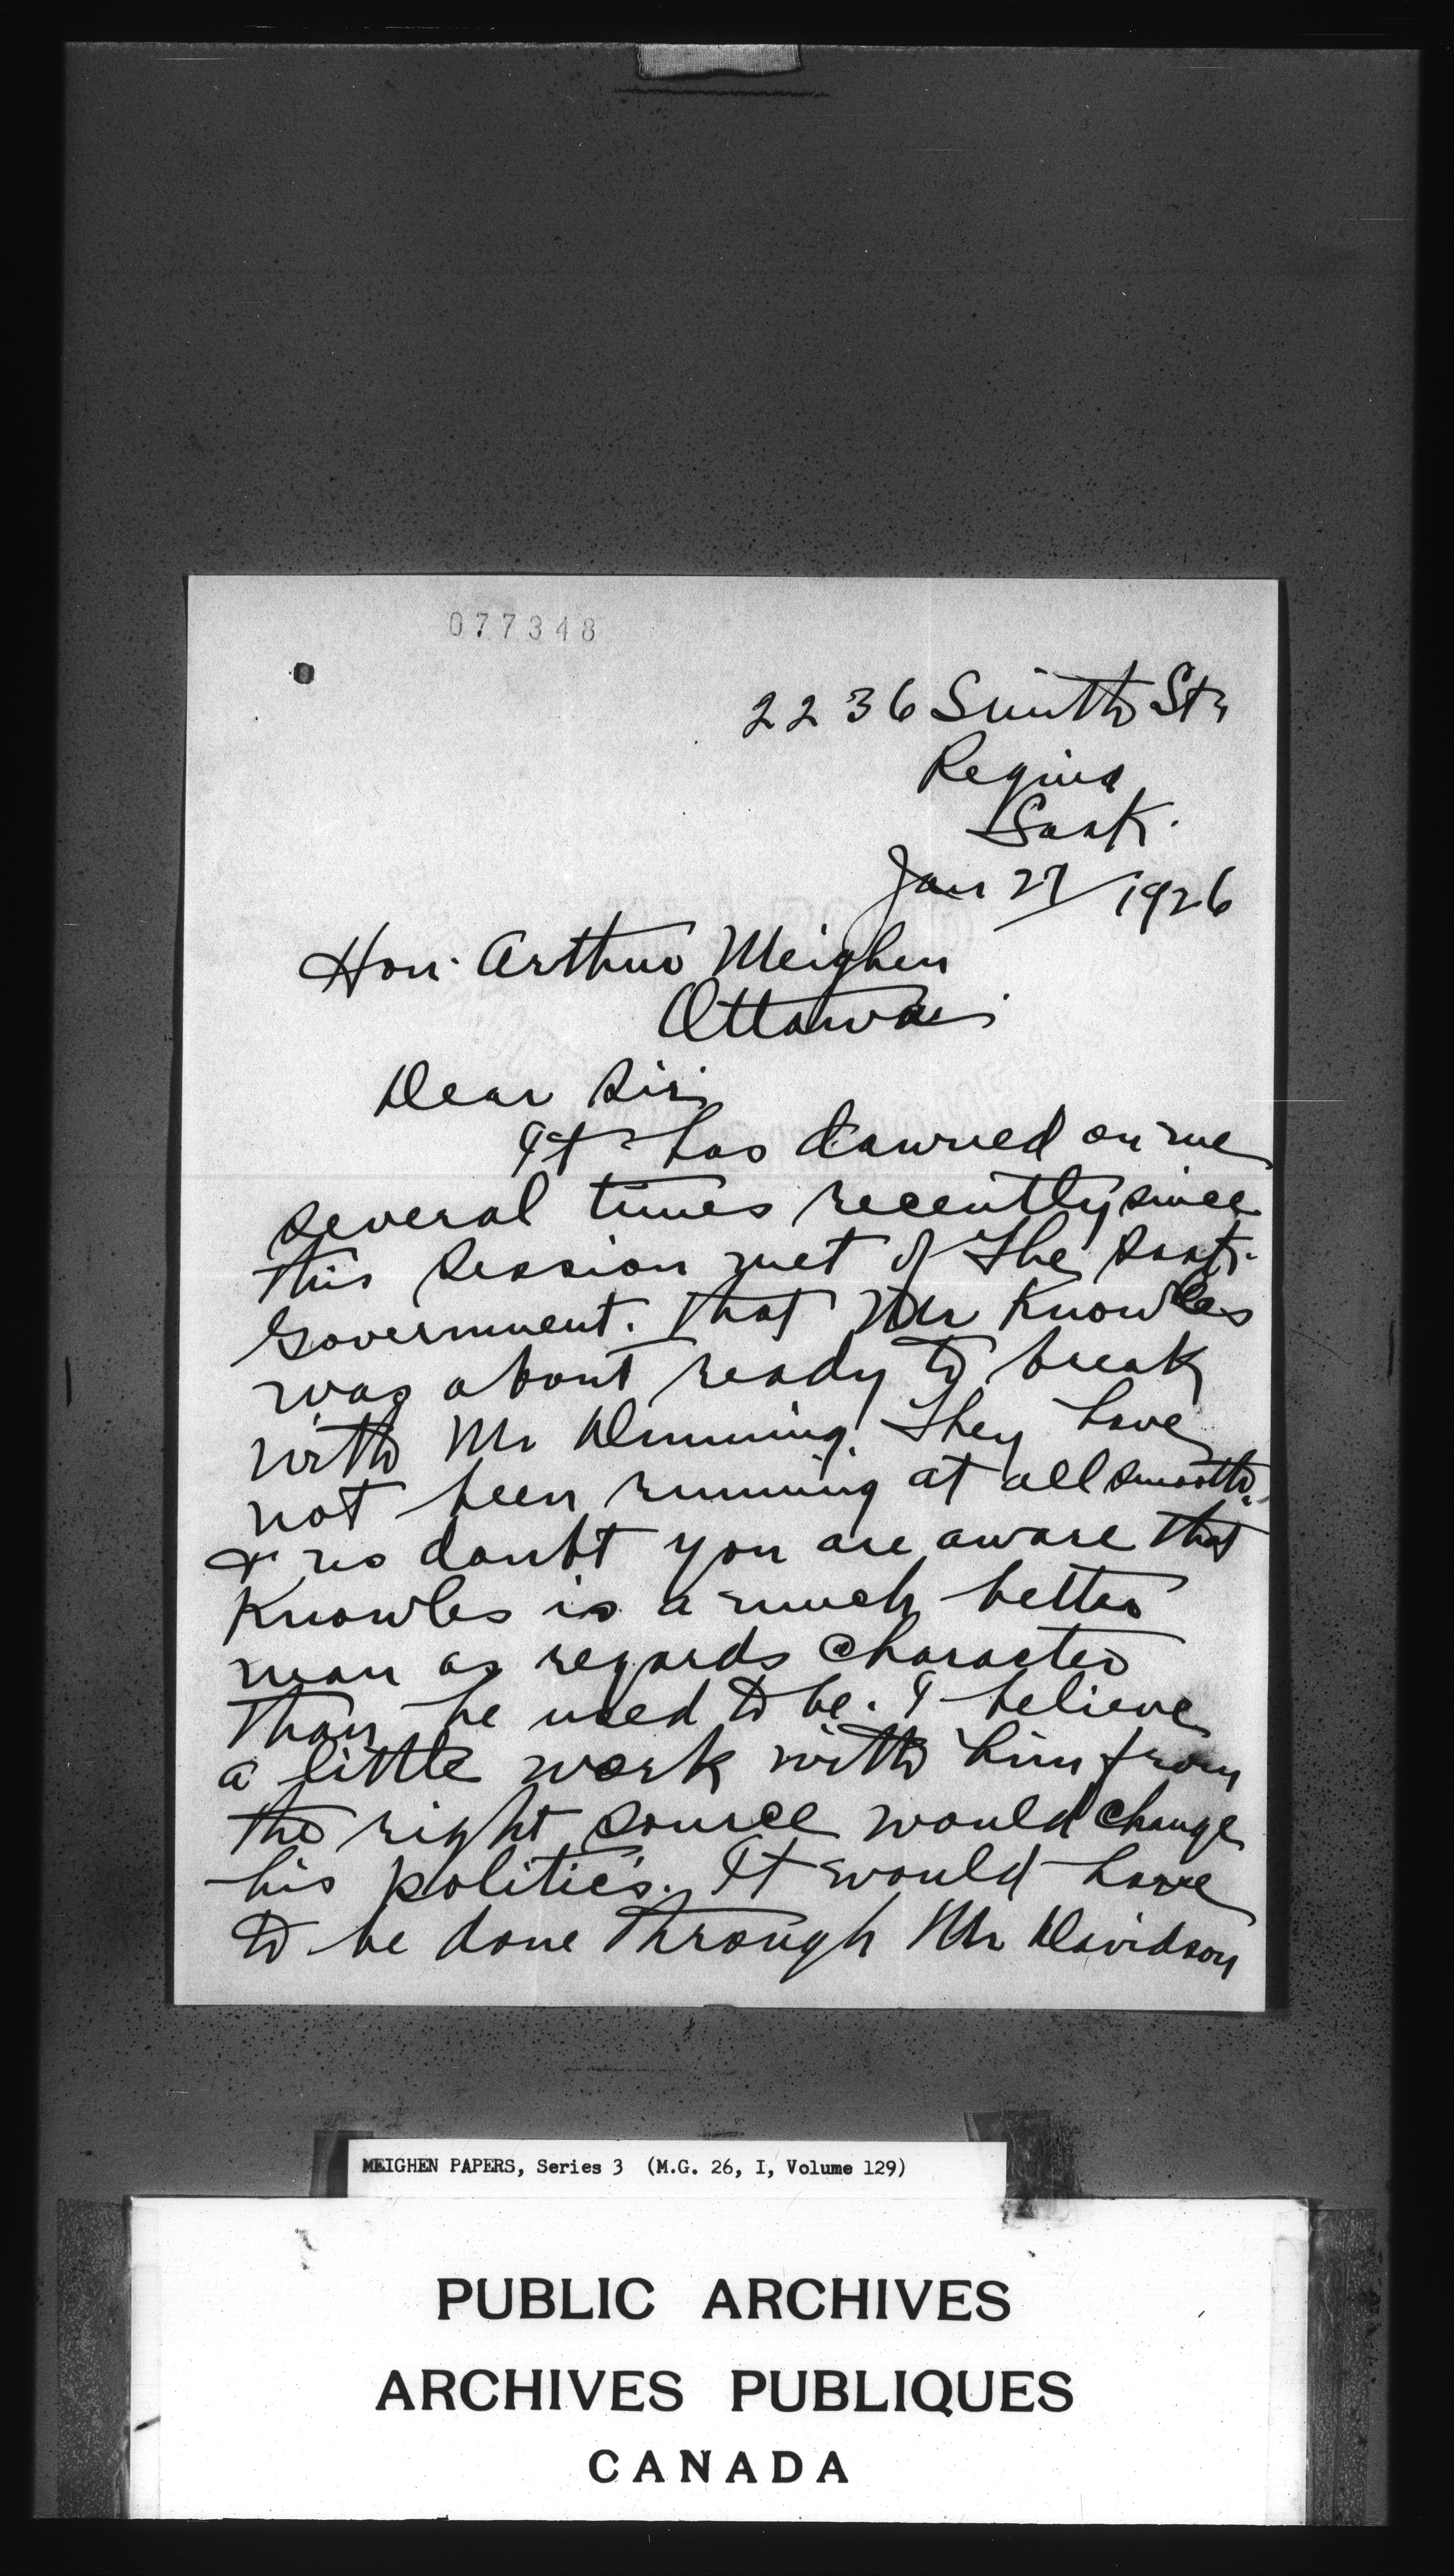 077348
2236 Smith St,
Regina
Sask.
Jan 27/1926
Hon. Arthur Meighen
Ottawa
Dear Sir;
It has dawned on me
several times recently since
this session met of the Sask.
Government. that Mr Knowles
was about ready to break
with Mr Dunning. They have
not been running at all smooth.
& no doubt you are aware that
Knowles is a much better
man as regards character
than he used to be. I believe
a little work with him from
the right source would change
his politics. It would have
to be done through Mr Davidson
MEIGHEN PAPERS, Series 3 (M.G. 26, I, Volume 129)
PUBLIC ARCHIVES
ARCHIVES PUBLIQUES
CANADA